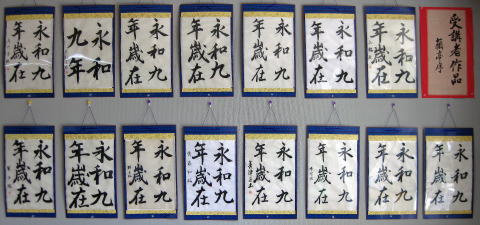 受講者作品
蘭亭序
永和九
年歳在
永和九
年歳在
永和九
年歳在
永和九
年歳在
永和九
年歳在
永和
九年
永和九
年歳在
永和九
年歳在
永和九
年歳在
永和九
年歳在
永和九
年歳在
永和九
年歳在
永和九
年歳在
永和九
年歳在
永和九
年歳在